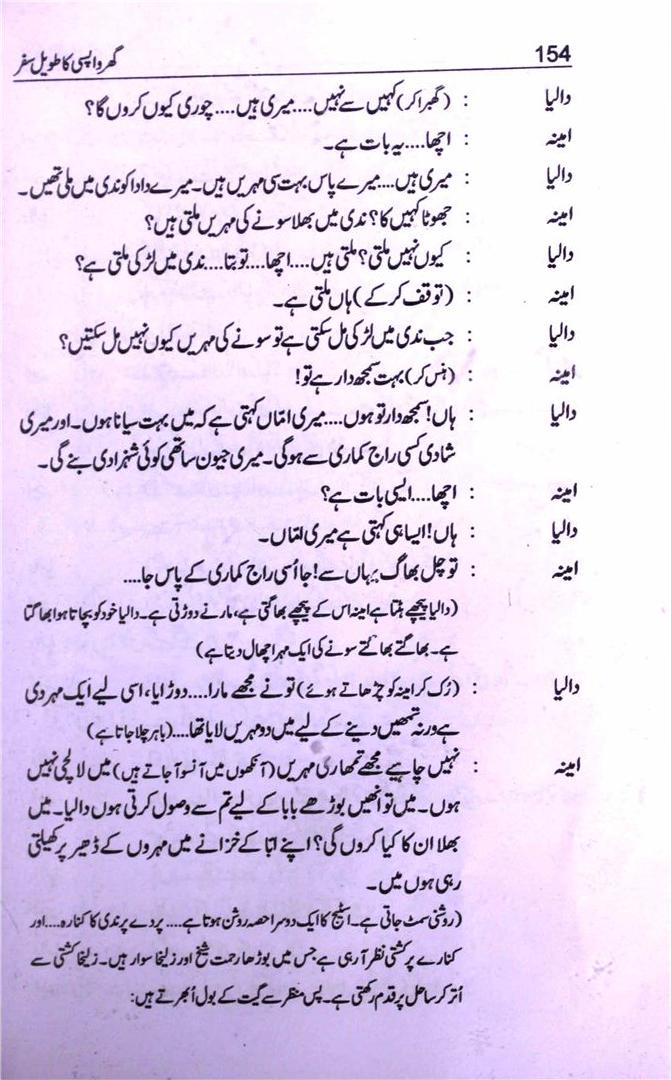 154 گھر واپسی کا طویل سفر
دالیا : (گھبرا کر) کہیں سے نہیں.... میری ہیں.... چوری کیوں کروں گا؟
امینہ : اچھا.... یہ بات ہے۔
دالیا : میری ہیں.... میرے پاس بہت سی مہریں ہیں۔ میرے دادا کو ندی میں ملی تھیں۔
امینہ : جھوٹا کہیں کا؟ ندی میں بھلا سونے کی مہریں ملتی ہیں؟
دالیا : کیوں نہیں ملتی؟ ملتی ہیں.... اچھا.... تو بتا.... ندی میں لڑکی ملتی ہے؟
امینہ : (توقف کر کے) ہاں ملتی ہے۔
دالیا : جب ندی میں لڑکی مل سکتی ہے تو سونے کی مہریں کیوں نہیں مل سکتیں؟
امینہ : (ہنس کر) بہت سمجھ دار ہے تو!
دالیا : ہاں! سمجھ دار تو ہوں.... میری امّاں کہتی ہے کہ میں بہت سیانا ہوں۔ اور میری
شادی کسی راج کماری سے ہوگی۔ میری جیون ساتھی کوئی شہزادی بنے گی۔
امینہ : اچھا.... ایسی بات ہے؟
دالیا : ہاں! ایسا ہی کہتی ہے میری امّاں۔
امینہ : تو چل بھاگ یہاں سے! جا اُسی راج کماری کے پاس جا....
(دالیا پیچھے ہٹتا ہے امینہ اس کے پیچھے بھاگتی ہے، مارنے دوڑتی ہے۔ دالیا خود کو بچاتا ہوا بھاگتا
ہے۔ بھاگتے بھاگتے سونے کی ایک مہر اچھال دیتا ہے)
دالیا : (رُک کر امینہ کو چڑھاتے ہوئے) تو نے مجھے مارا.... دوڑایا، اسی لیے ایک مہر دی
ہے ورنہ تمھیں دینے کے لیے میں دو مہریں لایا تھا.... (باہر چلا جاتا ہے)
امینہ : نہیں چاہیے مجھے تمھاری مہریں (آنکھوں میں آنسو آ جاتے ہیں) میں لالچی نہیں
ہوں۔ میں تو انھیں بوڑھے بابا کے لیے تم سے وصول کرتی ہوں دالیا۔ میں
بھلا ان کا کیا کروں گی؟ اپنے ابّا کے خزانے میں مہروں کے ڈھیر پر کھیلتی
رہی ہوں میں۔
(روشنی سمٹ جاتی ہے۔ اسٹیج کا ایک دوسرا حصہ روشن ہوتا ہے.... پردے پر ندی کا کنارہ.... اور
کنارے پر کشتی نظر آ رہی ہے جس میں بوڑھا رحمت شیخ اور زلیخا سوار ہیں۔ زلیخا کشتی سے
اُتر کر ساحل پر قدم رکھتی ہے۔ پس منظر سے گیت کے بول اُبھرتے ہیں: